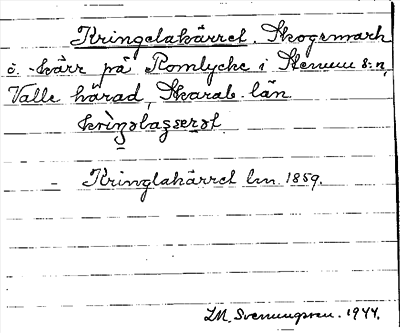 Kringelakärret. Skogsmark
o. -kärr på Romlycke i Stenum s:n,
Valle härad, Skarab. län.
Kringlakärret lm. 1859.
LM. Svenungsson. 1944.